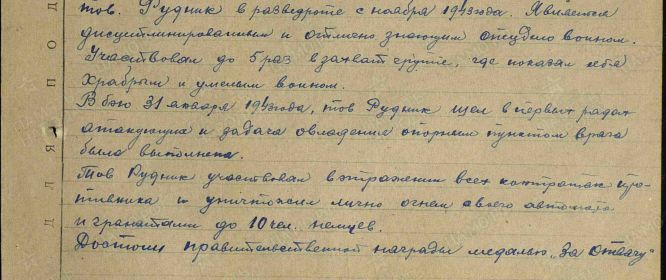 тов. Рудник в разведроте с ноября 1943 года. Является
дисциплинированным и отлично знающим спецдело воином.
Участвовал до 5 раз в захват группе, где показал себя
храбрым и умелым воином.
В бою 31 января 1943 года, тов Рудник шел в первых рядах
атакующих и задача овладения опорным пунктом врага
была выполнена.
Тов Рудник участвовал в отражении всех контратак про-
тивника и уничтожил лично огнем своего автомата
и гранатами до 10 чел. немцев.
Достоин правительственной награды медалью "За отвагу"
ДЛЯ ПОД